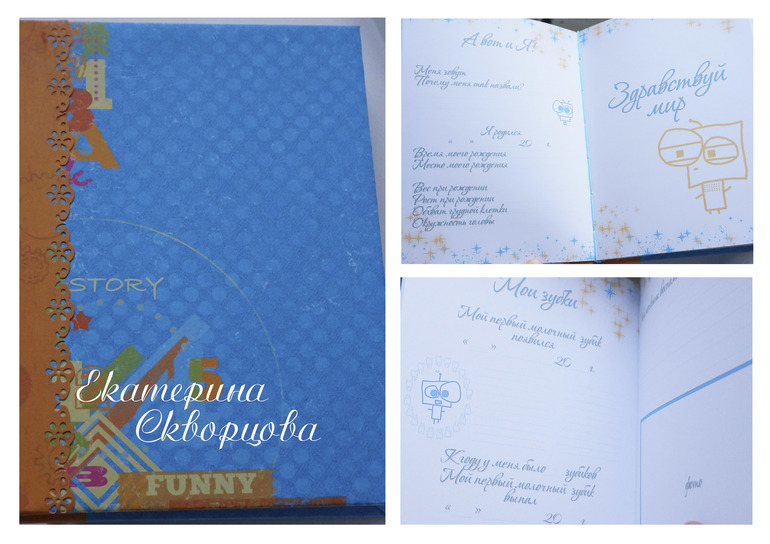 STORY
Екатерина
Скворцова
FUNNY
А вот и Я!
Меня зовут
Почему меня так назвали?
Я родился
« » 20 г.
Время моего рождения
Место моего рождения
Вес при рождении
Рост при рождении
Обхват грудной клетки
Окружность головы
Здравствуй
мир
Мои зубки
Мой первый молочный зубик
появился
« » 20 г.
К году у меня было зубков
Мой первый молочный зубик
выпал
« » 20 г.
фото